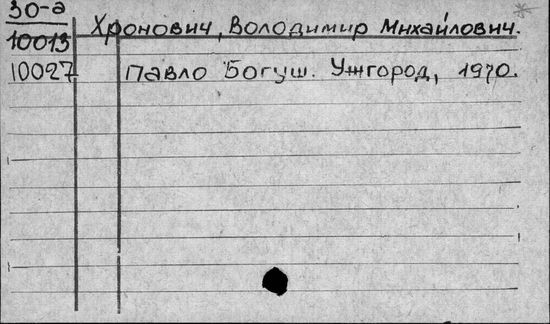 30-а
10013 Хронович, Володимир Михайлович.
10027 Павло Богуш. Ужгород, 1970.